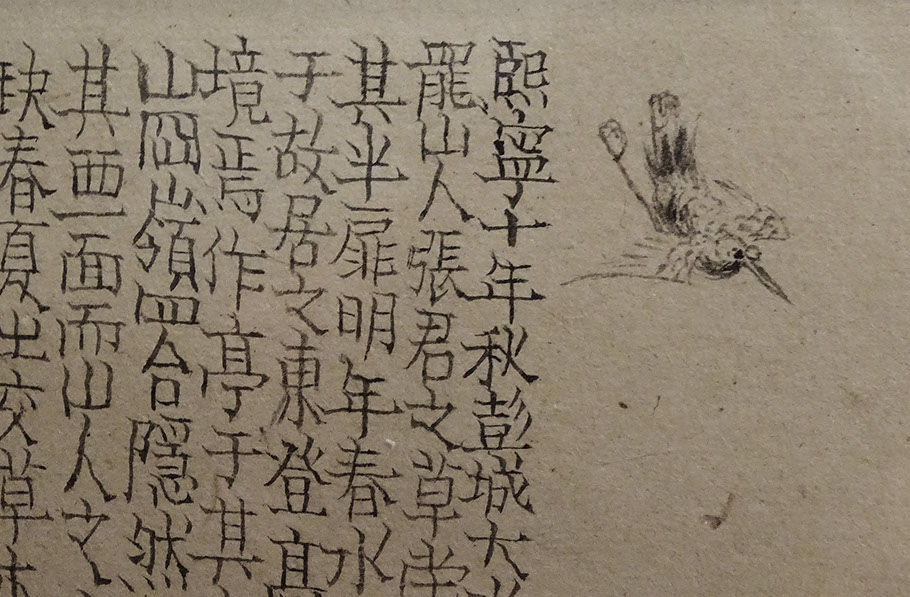 熙寧十年秋彭城大
罷山人張君之草堂
其半扉明年春水
于故居之東登高
境焉作亭于其
山岡嶺四合隱然
其西一面而山人之
春夏之交草木